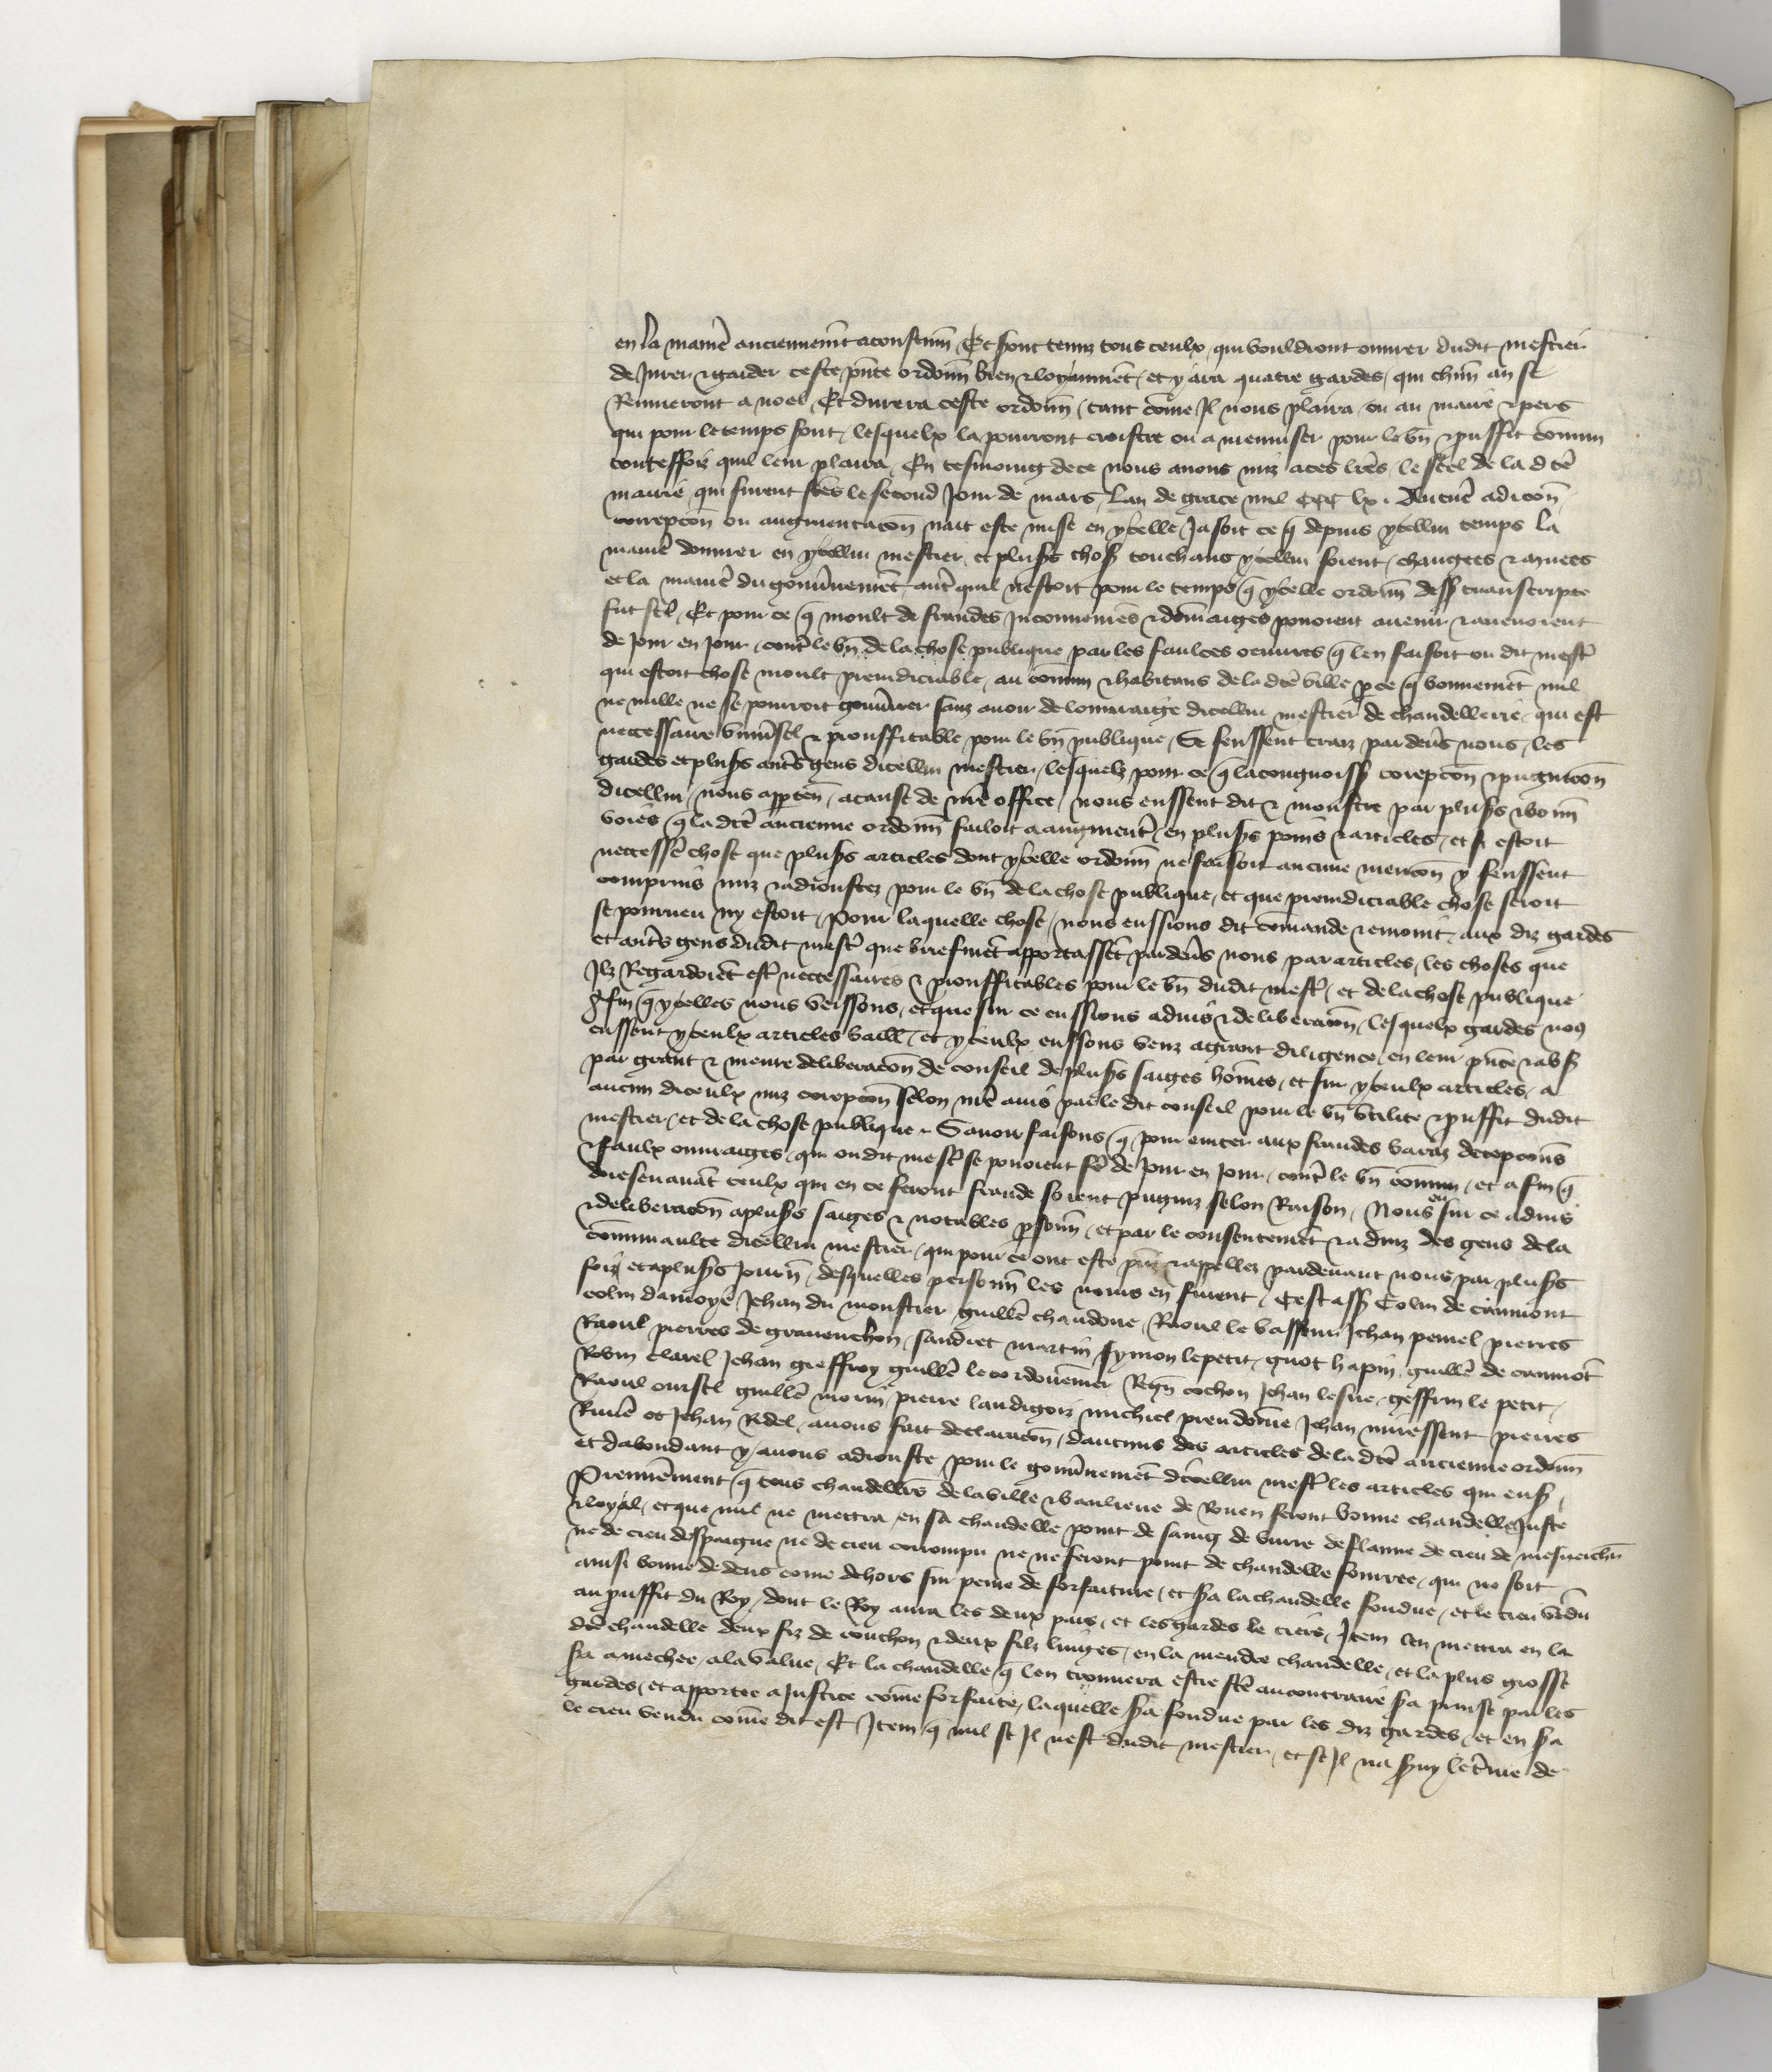 en la manie͂ anciennemt͂ acoustum͂ / Et sont tenuz tous ceulx qui vouldront ouurer dudit mestier
de Jurer ⁊ garder ceste pn͂te ordonn͂ bien ⁊ loyaument͂ / et y ara quatre gardes / qui chūn an se
Remueront a noel / Et durera ceste ordonn͂ / tant cōme Jl nous plaira / ou au maire ⁊ pers
qui pour le temps sont / lesquelx la pourront croistre ou amenuiser pour le bn͂ ⁊ ꝓuffit cōmun
touteffoiz quil leur plaira / En tesmoing de ce nous auons mis a ces lr͂es / le seel de la dce͂
mairie qui furent fc͂es le second Jour de mars / Lan de grace mil ccc lx . Aucune͂ adicōn /
correpcōn ou augmentacōn nait este mise en ycelle / Jasoit ce q̄ depuis ycellui temps la
manie͂ douurer en ycellui mestier et plus͂s chos͂ touchans ycellui soient / changees ⁊ ariuees
et la manie͂ du gouu͂nement͂ aut͂ quil nestoit pour le temps q̄ ycelle ordonn͂ dess͂ transcripte
fut fc͂e / Et pour ce q̄ moult de fraudes Jnconuenie͂s ⁊ dōmaiges pouoient auenir ⁊ auenoient
de Jour en Jour / cont͂ le bn͂ de la chose publique par les faulces oeuures q̄ len faisoit ou dit mest͂
qui estoit chose moult preiudiciable / au cōmun ⁊ habitans de la dce͂ ville ꝑ ce q̄ bonnement͂ nul
ne nulle ne se pourroit gouu͂ner sanz auoir de louuraige dicellui mestier de chandellerie / qui est
neccessaire vniu͂sel ⁊ prouffitable pour le bn͂ publique / Se feussent traiz par deu͂s nous / les
gardes et plus͂s aut͂s gens dicellui mestier / lesquelz pour ce q̄ la congnoiss͂ correpcōn ⁊ pugnicōn
dicellui / nous apꝑten͂ / a cause de nr͂e office / nous eussent dit ⁊ monstre par plus͂s ⁊ bonn͂
voies q̄ la dce͂ ancienne ordonn͂ failoit a augment͂ / en plus͂s poins ⁊ articles / et si estoit
neccesse͂ chose que plus͂s articles dont ycelle ordonn͂ ne faisoit aucune mencōn y feussent
comprins mis ⁊ adioustez pour le bn͂ de la chose publique / et que preiudiciable chose seroit
se pourueu ny estoit / Pour laquelle chose / nous eussions dit cōmande ⁊ enioint aux diz gardes
et aut͂s gens dudit mest͂ que briefment͂ apportassent͂ pardeu͂s nous par articles / les choses que
Jlz Regardoient͂ est͂ neccessaires ⁊ prouffitables pour le bn͂ dudit mest͂ / et de la chose publique
Afin q̄ ycelles nous veissions / et que sur ce eussions aduis ⁊ deliberacōn / lesquelx gardes nous
eussent yceulx articles baill͂ / et yceulx eussons veuz a grant diligence / en leur pn͂ce ⁊ abs͂
par grant ⁊ meure deliberacōn de conseil de plus͂s saiges hōmes / et sur yceulx articles / a
aucun diceulx mis correpcōn selon nr͂e auis par le dit conseil pour le bn͂ vtilite ⁊ ꝓuffit dudit
mestier / et de la chose publique . Sauoir faisons q̄ pour euiter aux fraudes baraz decepcōns
⁊ faulx ouuraiges / qui ou dit mest͂ se pouoient fe͂ de Jour en Jour / cont͂ le bn͂ cōmun / et afin q̄
doresenauāt ceulx qui en ce feront fraude soient pugniz selon Raison / Nous eu sur ce aduis
⁊ deliberacōn a plus͂s saiges ⁊ notables ꝑsonn͂ / et par le consentement͂ ⁊ aduiz des gens de la
cōmunaulte dicellui mestier / qui pour ce ont este pn͂s ⁊ appellez pardeuant nous par plus͂s
foiz et a plus͂s Journ͂ / desquelles personn͂ les noms en suient / Cest ass͂ Colin de caumont
colin damoye Jehan du monstier guille͂ chandoue / Raoul le vasseur Jehan penel pierres
Raoul pierres de grauenchon / sandret martin symon le petit / guiot hapin / guille͂ de caumōt
Robin clarel Jehan gieffroy guille͂ le cordouennier Regn͂ cochon Jehan lesue / geffrin le petit /
Raoul oursel guille͂ morin / pierre laudigois michiel preudōme Jehan miressent pierres
Riuie͂ et Jehan Ridel / auons fait declaracōn / daucuns des articles de la dce͂ ancienne ordonn͂
et dabondant y auons adiouste pour le gouu͂nement͂ dicellui mest͂ les articles qui ens͂ /
Premie͂ment q̄ tous chandellie͂s de la ville ⁊ banlieue de Rouen feront bonne chandelle Juste
⁊ loyal / et que nul ne mettra en sa chandelle point de saing de burre de flanne de cieu de mesueichn͂
ne de cieu despaigne ne de cieu corrompu ne ne feront point de chandelle fourree / qui ne soit
ausi bonne dedens cōme dehors sur peine de forfaiture / et s͂a la chandelle fondue / et le cieu vēdu
au ꝓuffit du Roy / dont le Roy aura les deux pars / et les gardes le tiers / Jtem len mettra en la
dce͂ chandelle deux filz de couchon ⁊ deux filz linges / en la mendre chandelle / et la plus grosse
s͂a amechee / a la value / Et la chandelle q̄ len trouuera estre fce͂ au contraire s͂a prinse par les
gardes / et apportee a Justice cōme forfaite / laquelle s͂a fondue par les diz gardes / et en s͂a
le cieu vendu cōme dit est / Jtem q̄ nul se Jl nest dudit mestier / et se Jl na s͂uy le t͂me de